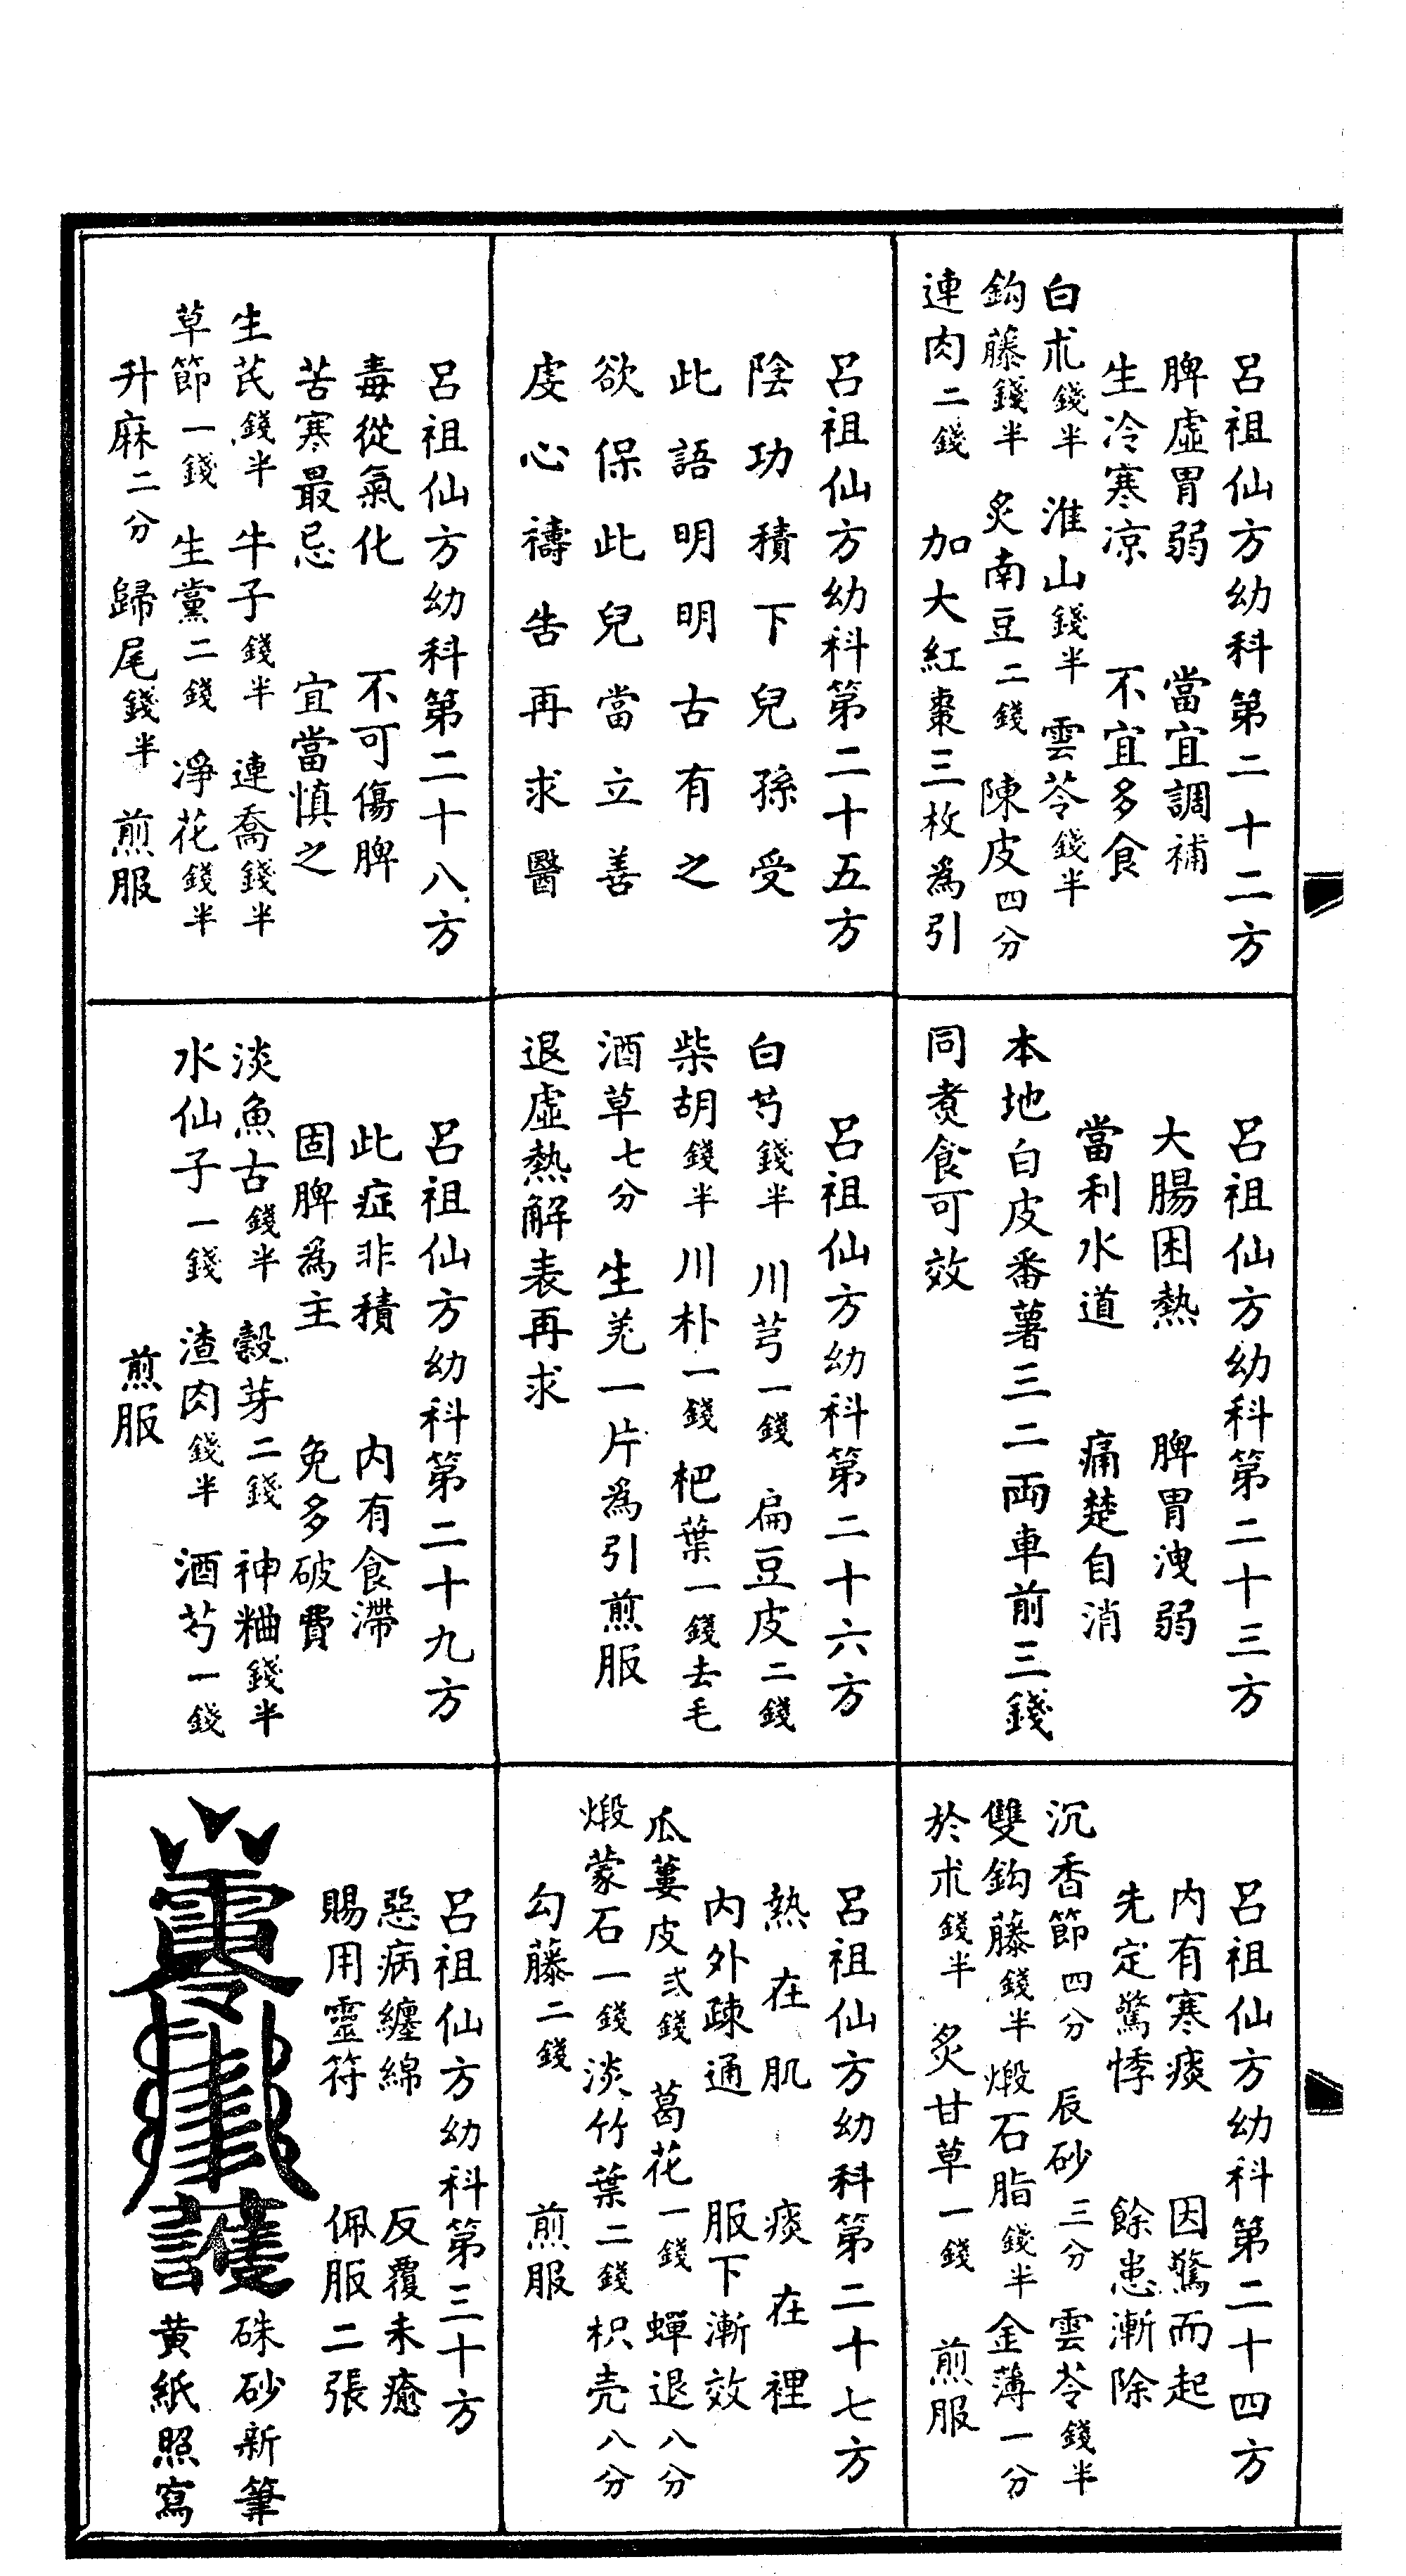 呂祖仙方幼科第二十二方
脾虛胃弱　當宜調補
生冷寒凉　不宜多食
白朮錢半　淮山錢半　雲苓錢半
鈎藤錢半　炙南豆二錢　陳皮四分
連肉二錢　加大紅棗三枚為引
呂祖仙方幼科第二十三方
大腸困熱　脾胃洩弱
當利水道　痛楚自消
本地白皮番薯三二両車前三錢
同煑食可效
呂祖仙方幼科第二十四方
内有寒痰　因驚而起
先定驚悸　餘患漸除
沉香節四分　辰砂三分　雲苓錢半
雙鈎藤錢半　煅石脂錢半　金薄一分
於朮錢半　炙甘草一錢　煎服
呂祖仙方幼科第二十五方
陰功積下兒孫受
此語明明古有之
欲保此兒當立善
虔心禱告再求醫
呂祖仙方幼科第二十六方
白芍錢半　川芎一錢　扁豆皮二錢
柴胡錢半　川朴一錢　杷葉一錢去毛
酒草七分　生羗一片為引煎服
退虛熱解表再求
呂祖仙方幼科第二十七方
熱在肌　痰在裡
内外疎通　服下漸效
瓜蔞皮弍錢　葛花一錢　蟬退八分
煅蒙石一錢　淡竹葉二錢　枳壳八分
勾藤二錢　煎服
呂祖仙方幼科第二十八方
毒從氣化　不可傷脾
苦寒最忌　宜當慎之
生芪錢半　牛子錢半　連喬錢半
草節一錢　生黨二錢　凈花錢半
升麻二分　歸尾錢半　煎服
呂祖仙方幼科第二十九方
此症非積　内有食滯
固脾為主　免多破費
淡魚古錢半　穀芽二錢　神粬錢半
水仙子一錢　渣肉錢半　酒芍一錢
煎服
呂祖仙方幼科第三十方
惡病纏綿　反覆未癒
賜用靈符　佩服二張
硃砂新筆
黄紙照寫